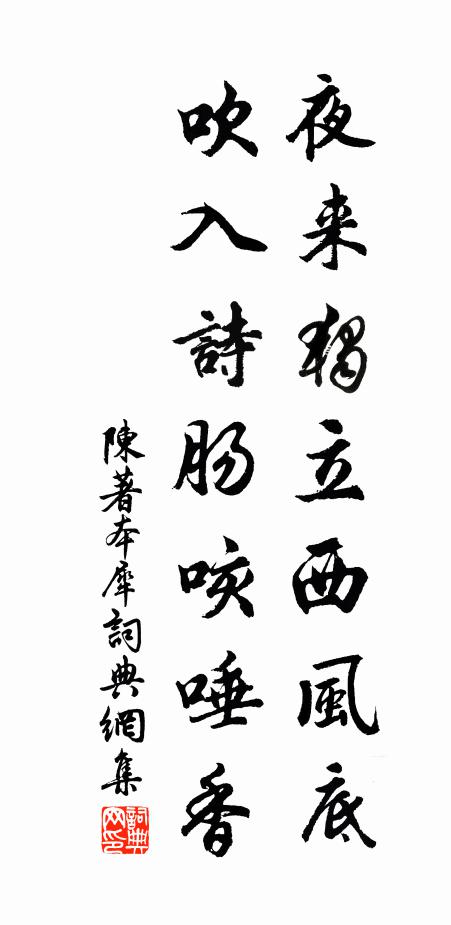 夜来獨立西風底
吹入詩肠咳唾香
陳著本犀詞典網集
詞典
网印